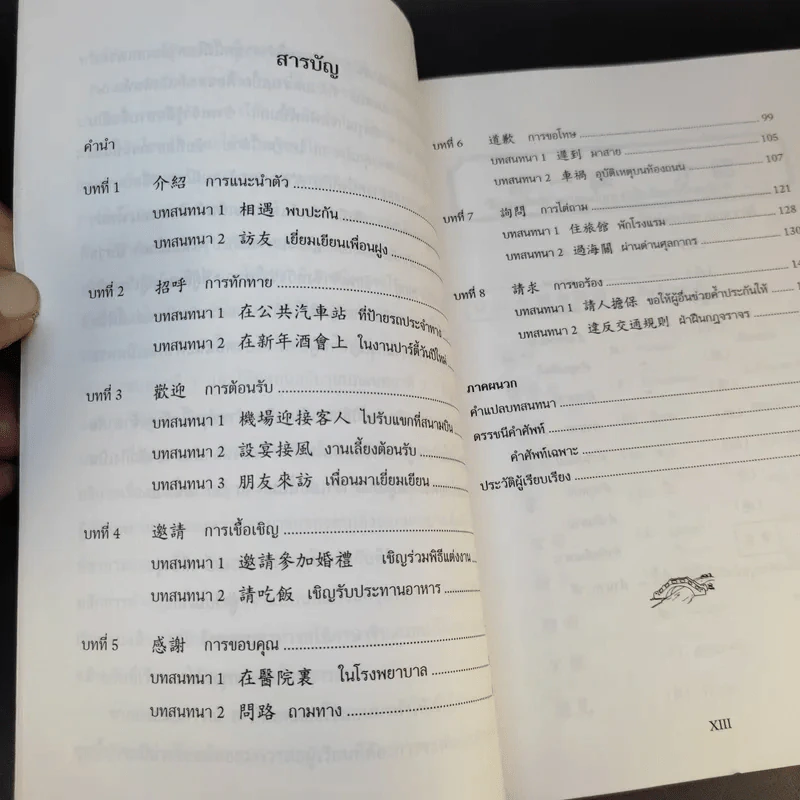 สารบัญ
คำนำ
บทที่ 1 介紹 การแนะนำตัว
บทสนทนา 1 相遇 พบปะกัน
บทสนทนา 2 訪友 เยี่ยมเยียนเพื่อนฝูง
บทที่ 2 招呼 การทักทาย
บทสนทนา 1 在公共汽車站 ที่ป้ายรถประจำทาง
บทสนทนา 2 在新年酒會上 ในงานปาร์ตี้วันปีใหม่
บทที่ 3 歡迎 การต้อนรับ
บทสนทนา 1 機場迎接客人 ไปรับแขกที่สนามบิน
บทสนทนา 2 設宴接風 งานเลี้ยงต้อนรับ
บทสนทนา 3 朋友來訪 เพื่อนมาเยี่ยมเยียน
บทที่ 4 邀請 การเชื้อเชิญ
บทสนทนา 1 邀請參加婚禮 เชิญร่วมพิธีแต่งงาน
บทสนทนา 2 請吃飯 เชิญรับประทานอาหาร
บทที่ 5 感謝 การขอบคุณ
บทสนทนา 1 在醫院裏 ในโรงพยาบาล
บทสนทนา 2 問路 ถามทาง
บทที่ 6 道歉 การขอโทษ 99
บทสนทนา 1 遲到 มาสาย 105
บทสนทนา 2 車禍 อุบัติเหตุบนท้องถนน 107
บทที่ 7 詢問 การไต่ถาม 121
บทสนทนา 1 住旅館 พักโรงแรม 128
บทสนทนา 2 過海關 ผ่านด่านศุลกากร 130
บทที่ 8 請求 การขอร้อง
บทสนทนา 1 請人擔保 ขอให้ผู้อื่นช่วยค้ำประกันให้
บทสนทนา 2 違反交通規則 ฝ่าฝืนกฎจราจร
ภาคผนวก
คำแปลบทสนทนา
ดรรชนีคำศัพท์
คำศัพท์เฉพาะ
ประวัติผู้เรียบเรียง
XIII